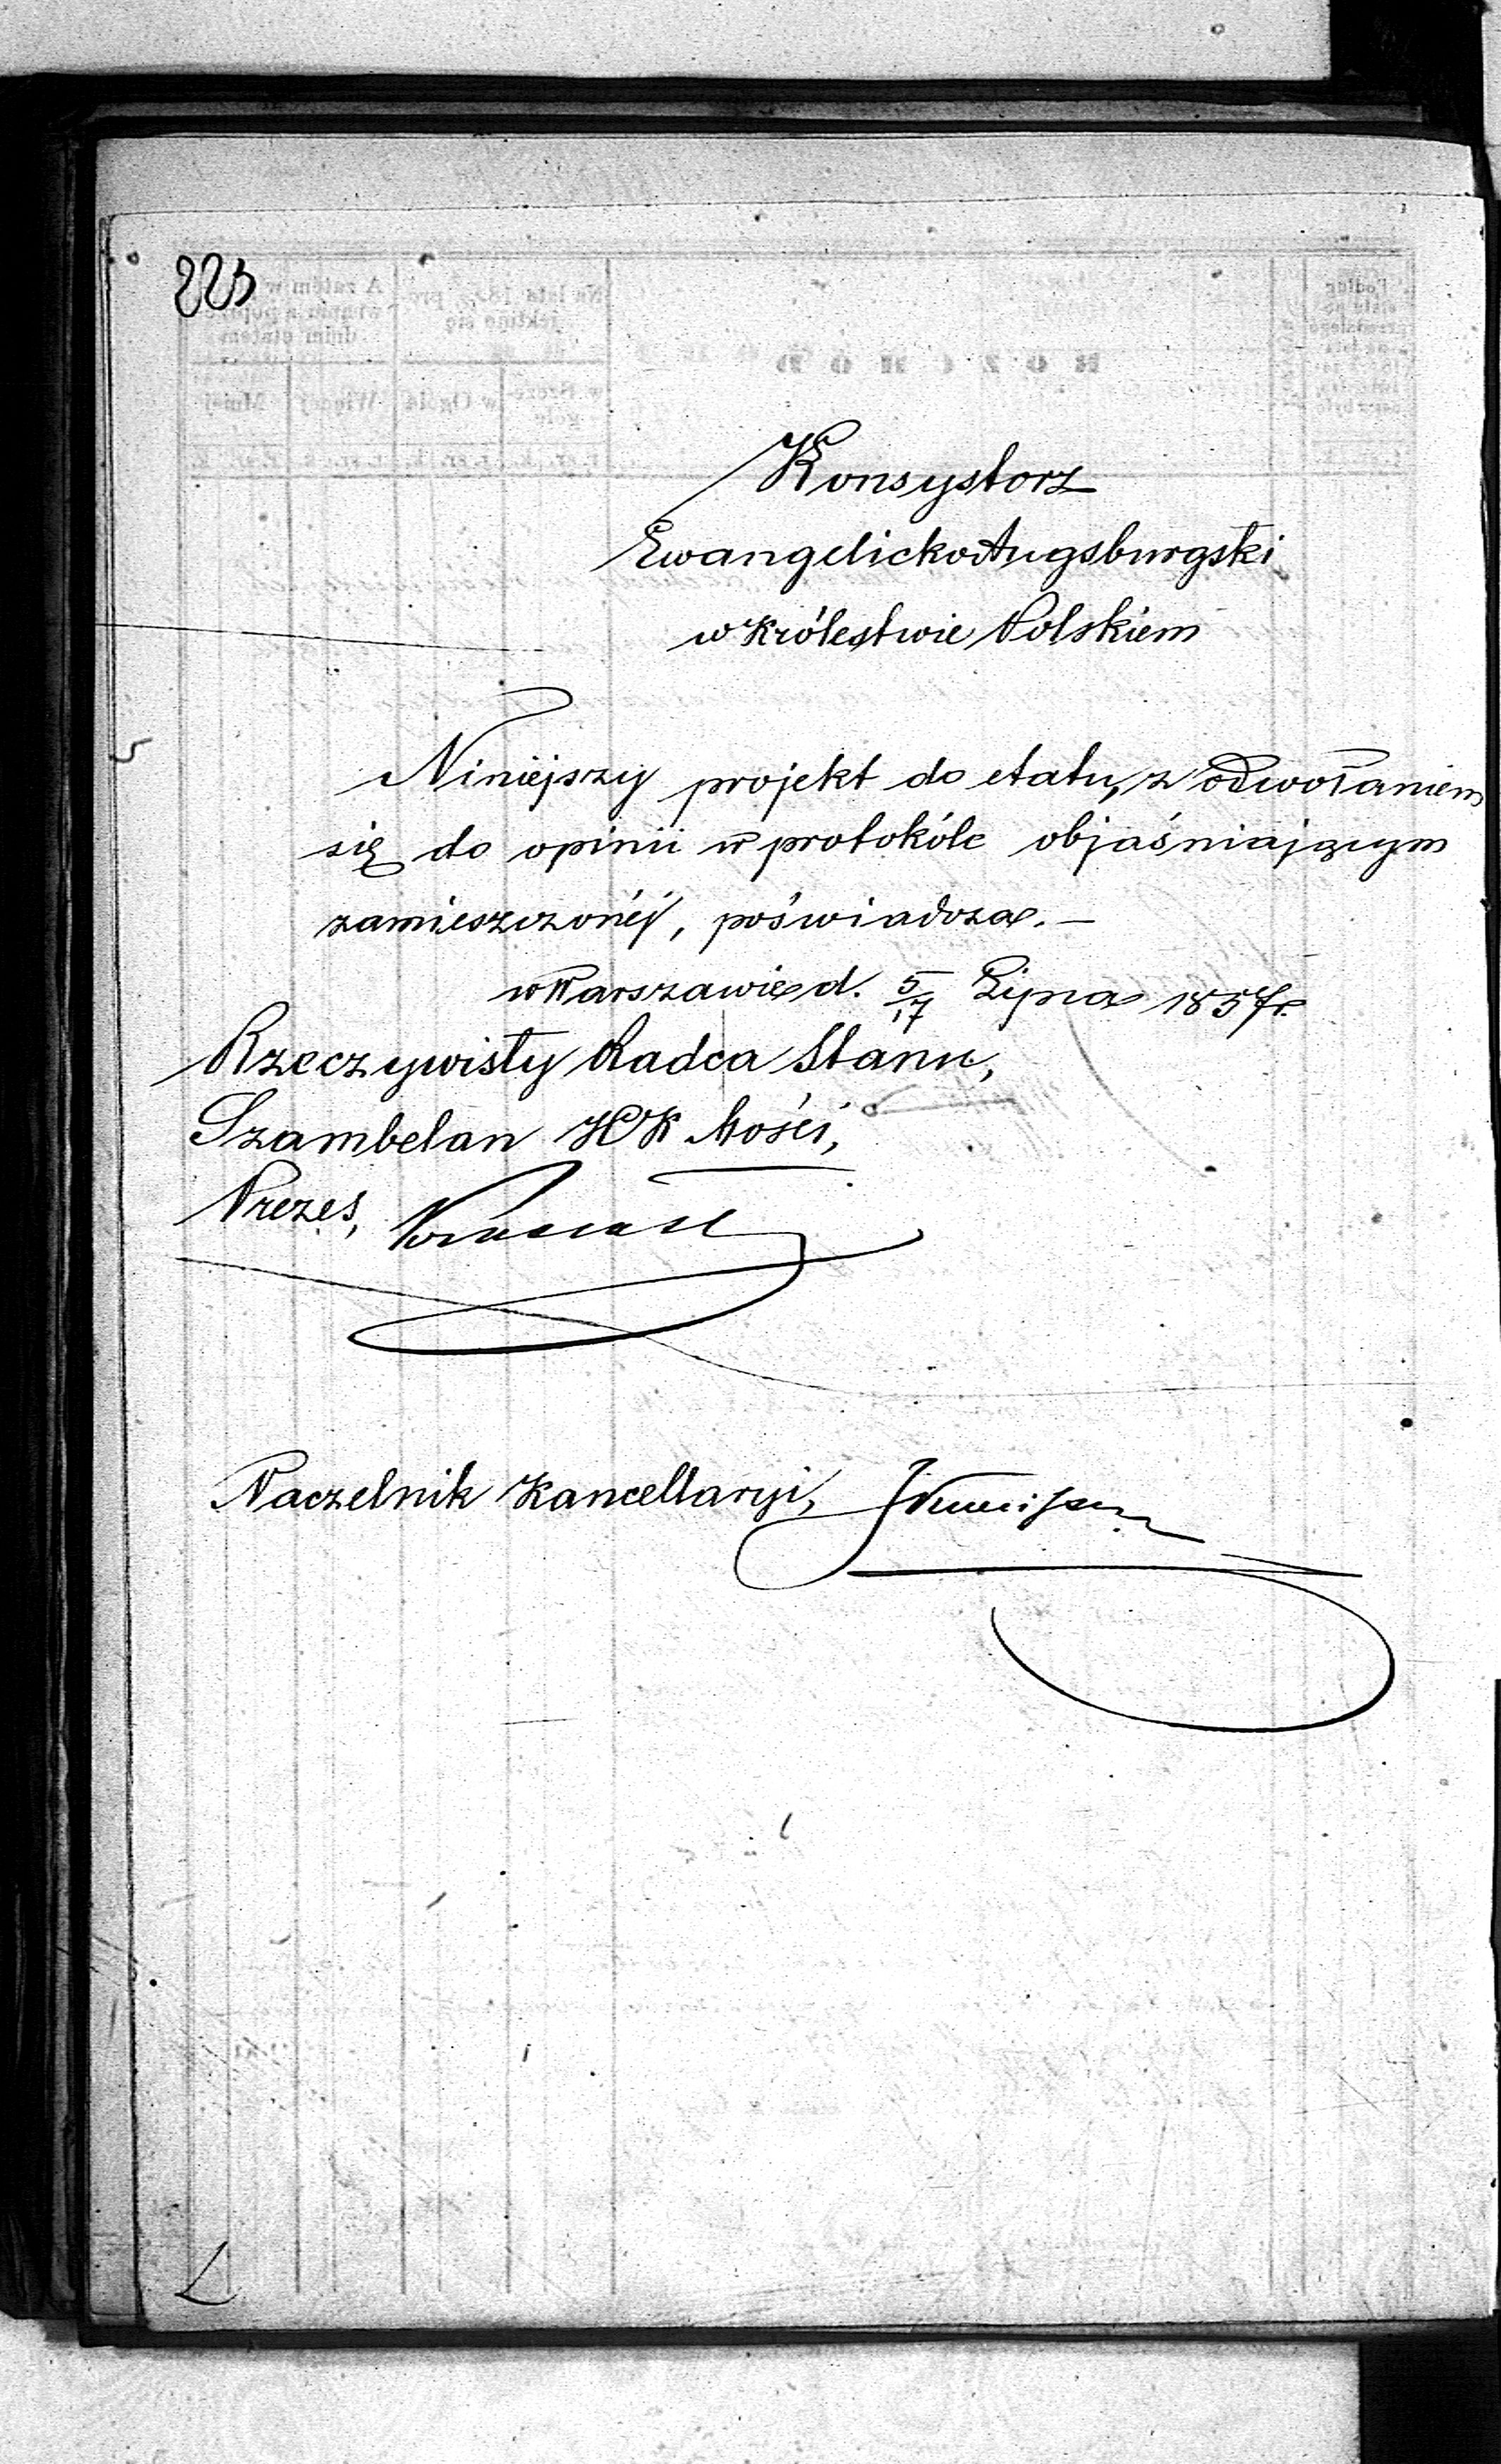 223
Konsystorz
Ewangelicko Augsburgski
w Królestwie Polskiem
Niniejszy projekt do etatu, z odwołaniem
się do opinii w protokóle objaśniającym
zamieszczonéj, poświadcza. —
w Warszawie d. 5/17 Lipca 1857 r.
Rzeczywisty Radca Stanu,
Szambelan JCK Mości,
Prezes,
Naczelnik Kancellaryi,